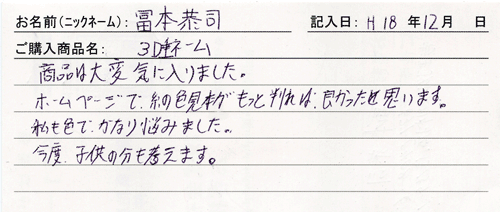 お名前(ニックネーム): 冨本恭司 記入日: H18年12月 日
ご購入商品名: 3D刺繍ネーム
商品は大変気に入りました。
ホームページで、糸の色見本がもっと判れば、良かったと思います。
私も色で、かなり悩みました。
今度、子供の分も考えます。